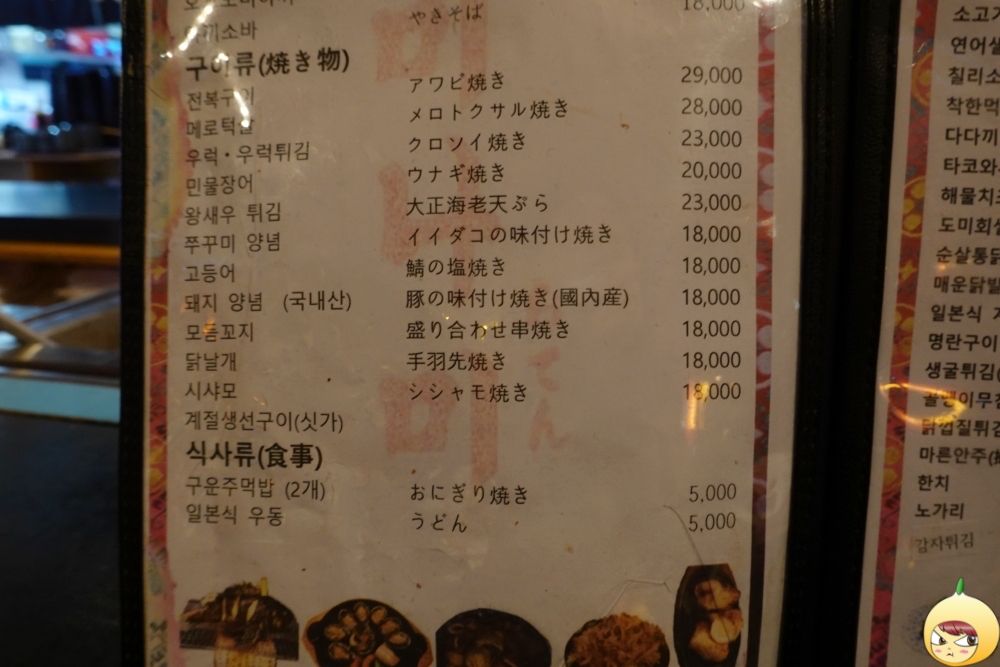 やきそば 18,000
끼소바
구이류(焼き物)
전복구이 アワビ焼き 29,000
메로턱살 メロトクサル焼き 28,000
우럭・우럭튀김 クロソイ焼き 23,000
민물장어 ウナギ焼き 20,000
왕새우 튀김 大正海老天ぷら 23,000
쭈꾸미 양념 イイダコの味付け焼き 18,000
고등어 鯖の塩焼き 18,000
돼지 양념 (국내산) 豚の味付け焼き(國內産) 18,000
모듬꼬지 盛り合わせ串焼き 18,000
닭날개 手羽先焼き 18,000
시샤모 シシャモ焼き 18,000
계절생선구이(싯가)
식사류(食事)
구운주먹밥 (2개) おにぎり焼き 5,000
일본식 우동 うどん 5,000
소고기
연어
칠리소
착한먹
다다끼
타코와
해물치즈
도미회
순살통닭
매운닭발
일본식
명란구이
생굴튀김
골뱅이무침
닭껍질튀김
마른안주
한치
노가리
감자튀김